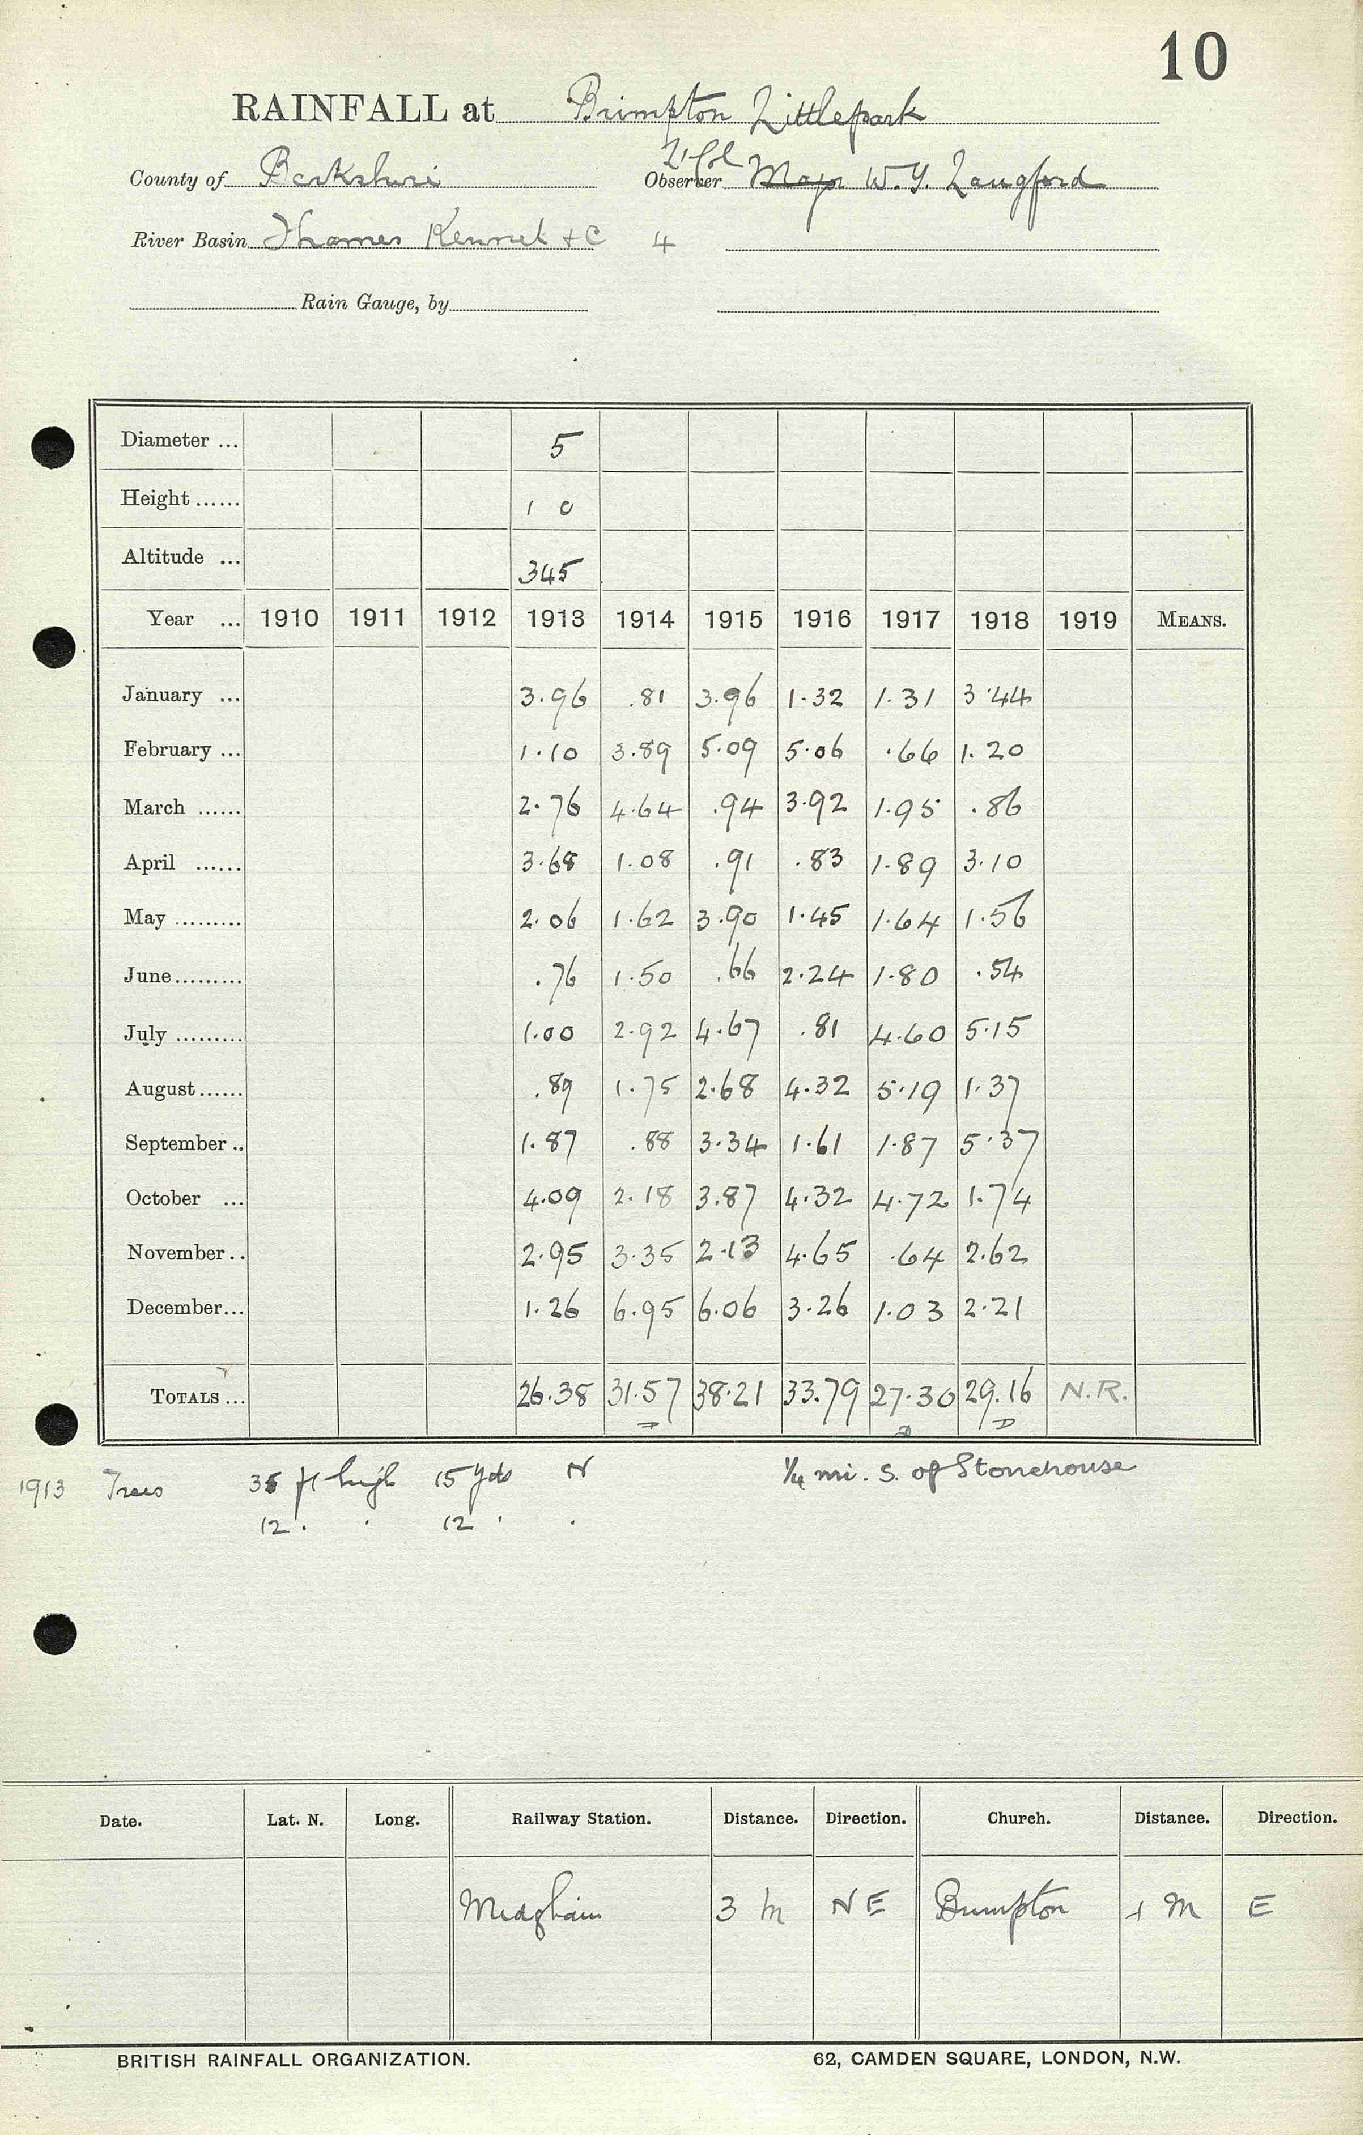 10
RAINFALL at Brimpton Littlepark
Lt Col
County of Berkshire Observer Major W. Y. Langford
River Basin Thames Kennet + C 4
Rain Gauge, by
Diameter ... 5
Height ...... 1 0
Altitude ... 345
Year ... 1910 1911 1912 1913 1914 1915 1916 1917 1918 1919 MEANS.
January ... 3.96 .81 3.96 1.32 1.31 3.44
February ... 1.10 3.89 5.09 5.06 .66 1.20
March ...... 2.76 4.64 .94 3.92 1.95 .86
April ...... 3.68 1.08 .91 .83 1.89 3.10
May ......... 2.06 1.62 3.90 1.45 1.64 1.56
June......... .76 1.50 .66 2.24 1.80 .54
July ......... 1.00 2.92 4.67 .81 4.60 5.15
August...... .89 1.75 2.68 4.32 5.19 1.37
September .. 1.87 .88 3.34 1.61 1.87 5.37
October ... 4.09 2.18 3.87 4.32 4.72 1.74
November .. 2.95 3.35 2.13 4.65 .64 2.62
December... 1.26 6.95 6.06 3.26 1.03 2.21
TOTALS ... 26.38 31.57 38.21 33.79 27.30 29.16 N.R.
1913 Trees 35 ft high 15 yds N 1/4 mi. S. of Stonehouse
12 . . 12 . .
Date. Lat. N. Long. Railway Station. Distance. Direction. Church. Distance. Direction.
Midgham 3 m NE Brimpton 1 M E
BRITISH RAINFALL ORGANIZATION. 62, CAMDEN SQUARE, LONDON, N.W.